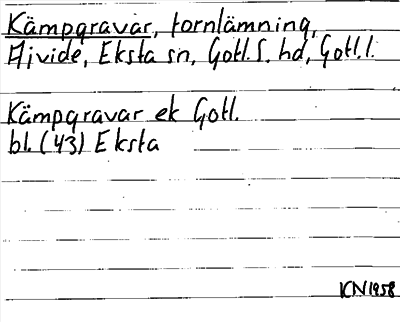 Kämpgravar, fornlämning,
Ajvide, Eksta sn, Gotl. S. hd, Gotl. l.
Kämpgravar ek Gotl.
bl. (43) Eksta
KN 1958